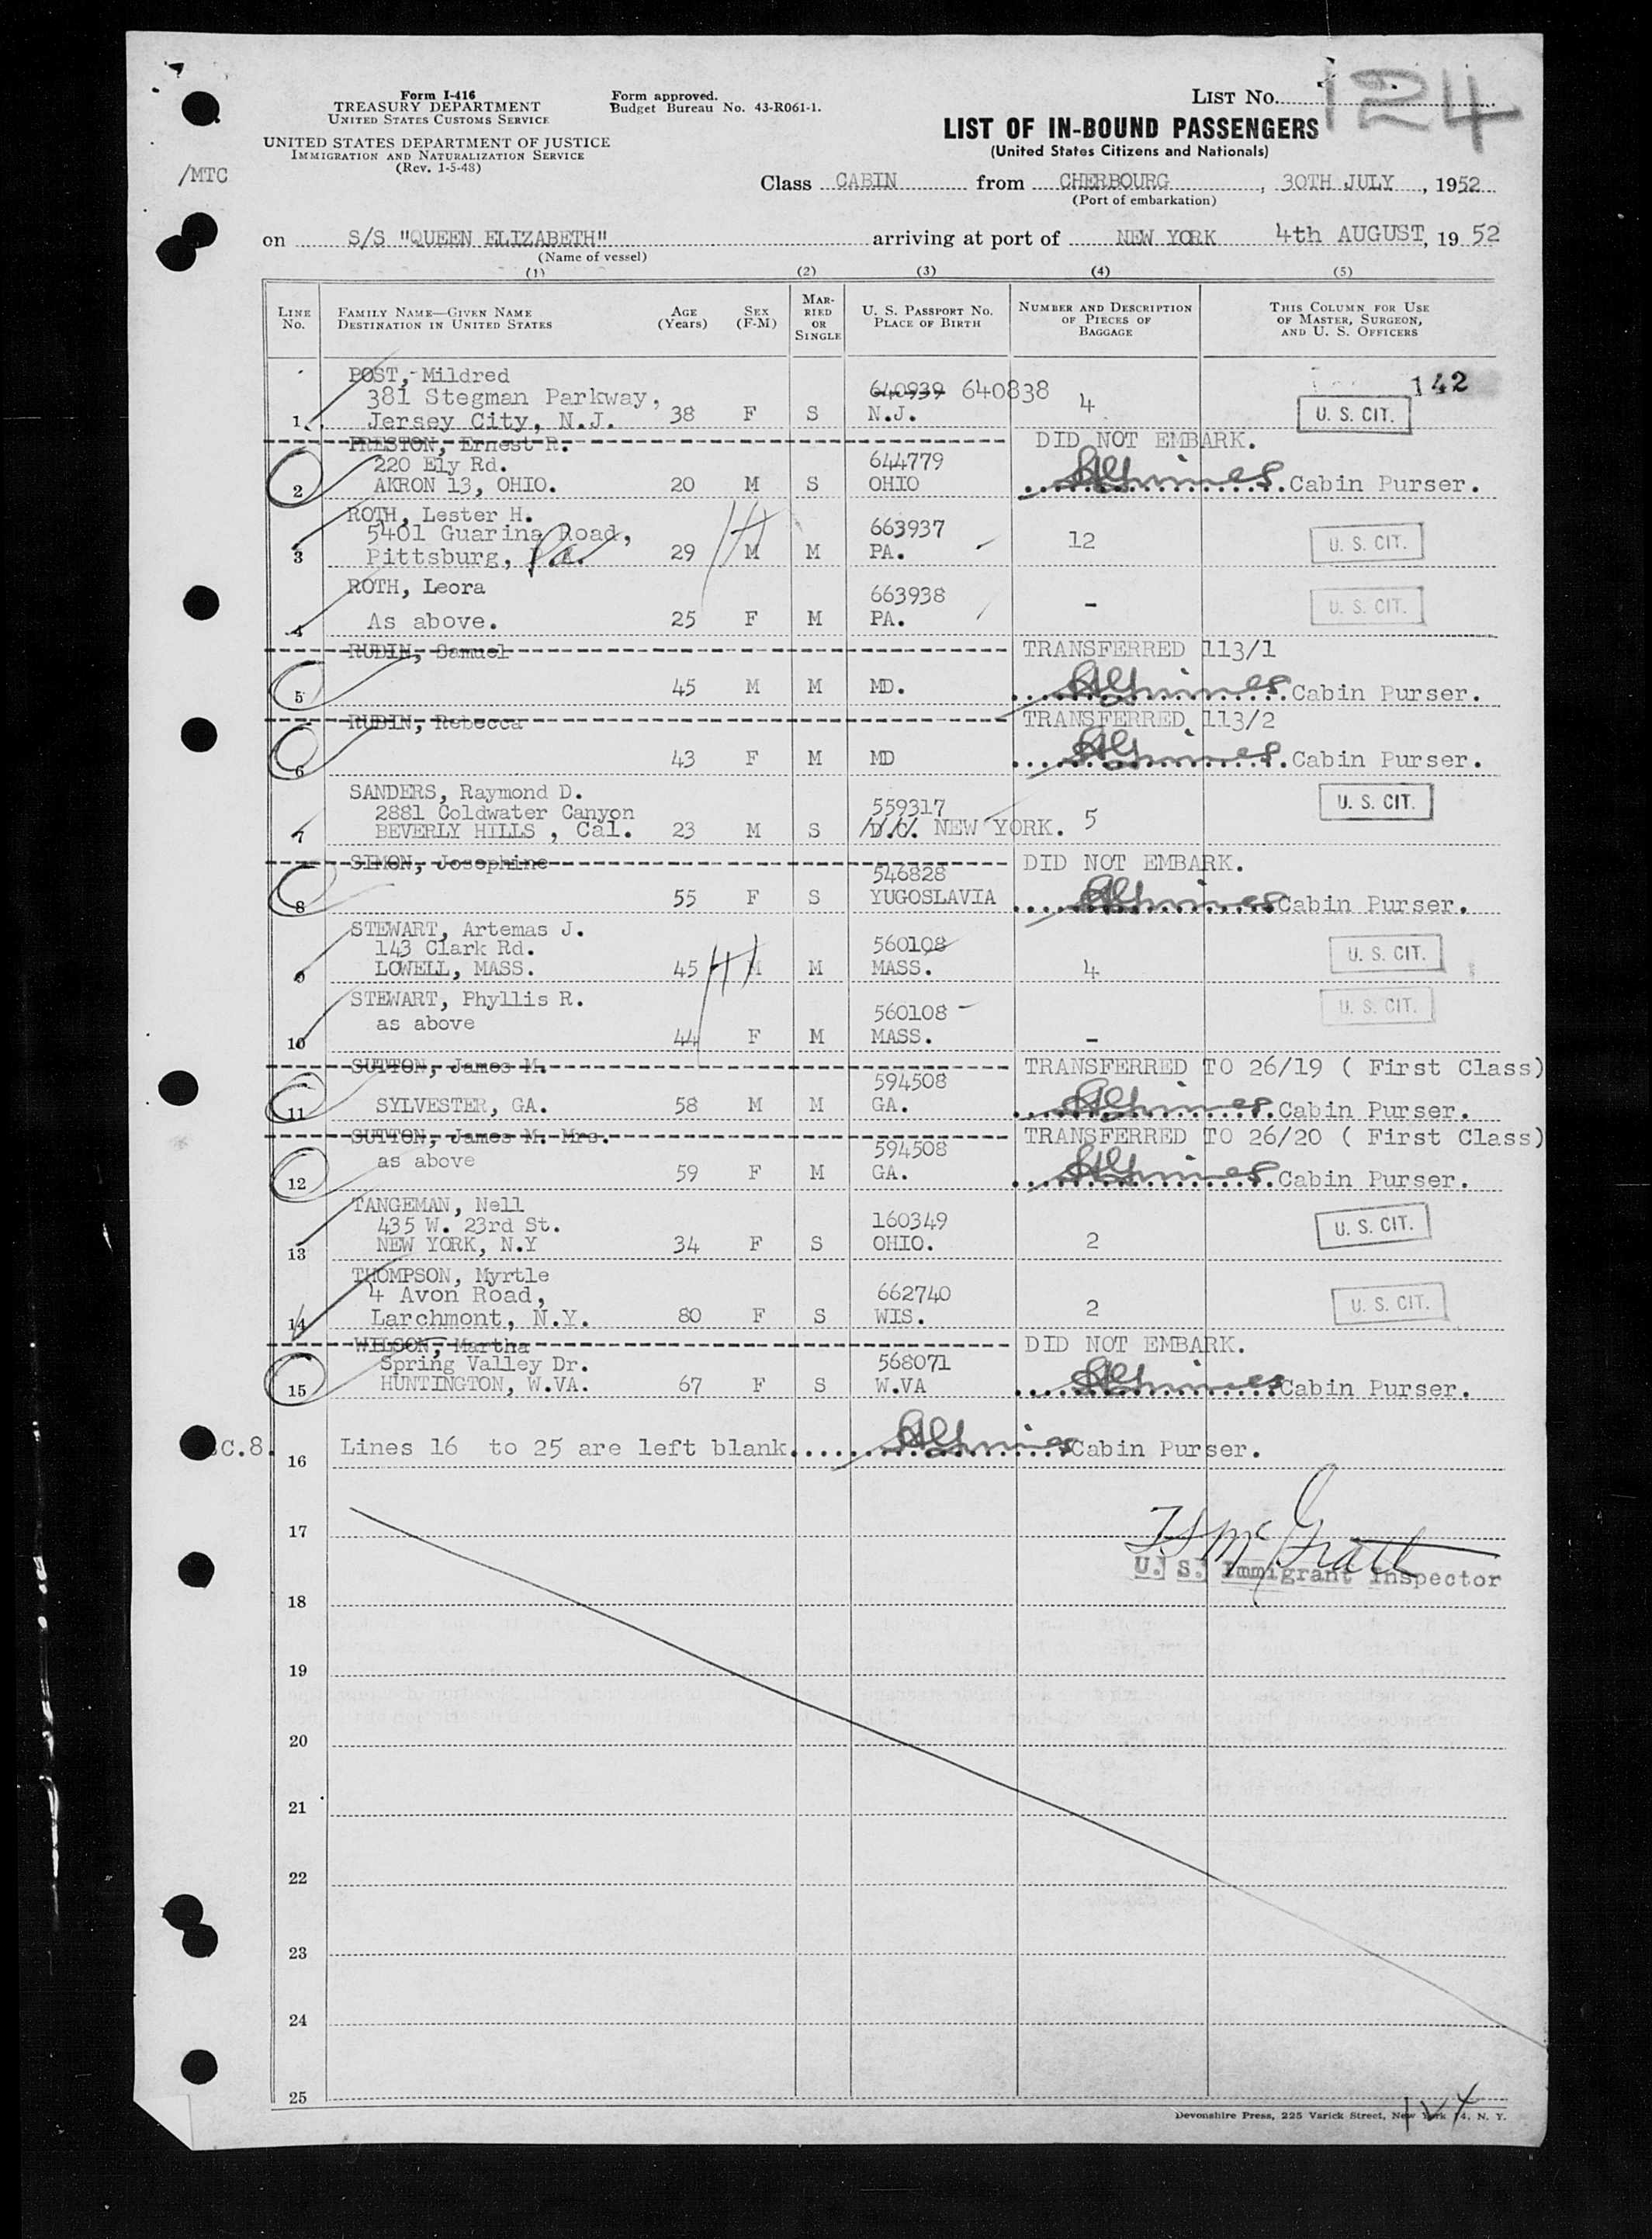 Form I-416
TREASURY DEPARTMENT
UNITED STATES CUSTOMS SERVICE
UNITED STATES DEPARTMENT OF JUSTICE
IMMIGRATION AND NATURALIZATION SERVICE
(Rev. 1-5-48)
Form approved.
Budget Bureau No. 43-R061-1.
LIST No. 124
LIST OF IN-BOUND PASSENGERS
(United States Citizens and Nationals)
/MTC
Class CABIN from CHERBOURG, 30TH JULY, 1952
(Port of embarkation)
on S/S "QUEEN ELIZABETH" arriving at port of NEW YORK 4th AUGUST, 19 52
(Name of vessel)
(1) (2) (3) (4) (5)
LINE No. FAMILY NAME—GIVEN NAME DESTINATION IN UNITED STATES AGE (Years) SEX (F-M) MARRIED OR SINGLE U. S. PASSPORT No. PLACE OF BIRTH NUMBER AND DESCRIPTION OF PIECES OF BAGGAGE THIS COLUMN FOR USE OF MASTER, SURGEON, AND U. S. OFFICERS
POST, Mildred 142
381 Stegman Parkway, 640939 640838
1 Jersey City, N.J. 38 F S N.J. 4 U. S. CIT.
PRESTON, Ernest R. DID NOT EMBARK.
220 Ely Rd. 644779
2 AKRON 13, OHIO. 20 M S OHIO Cabin Purser.
ROTH, Lester H.
5401 Guarina Road, 663937
3 Pittsburg, Pa. 29 M M PA. 12 U. S. CIT.
ROTH, Leora 663938
4 As above. 25 F M PA. - U. S. CIT.
RUDIN, Samuel TRANSFERRED 113/1
5 45 M M MD. Cabin Purser.
RUDIN, Rebecca TRANSFERRED 113/2
6 43 F M MD Cabin Purser.
SANDERS, Raymond D.
2881 Coldwater Canyon 559317 U. S. CIT.
7 BEVERLY HILLS , Cal. 23 M S NEW YORK. 5
SIMON, Josephine DID NOT EMBARK.
546828
8 55 F S YUGOSLAVIA Cabin Purser.
STEWART, Artemas J.
143 Clark Rd. 560108
9 LOWELL, MASS. 45 M M MASS. 4 U. S. CIT.
STEWART, Phyllis R. 560108 U. S. CIT.
as above
10 44 F M MASS. -
SUTTON, James M. TRANSFERRED TO 26/19 ( First Class)
594508
11 SYLVESTER, GA. 58 M M GA. Cabin Purser.
SUTTON, James M. Mrs. TRANSFERRED TO 26/20 ( First Class)
as above 594508
12 59 F M GA. Cabin Purser.
TANGEMAN, Nell
435 W. 23rd St. 160349 U. S. CIT.
13 NEW YORK, N.Y 34 F S OHIO. 2
THOMPSON, Myrtle
4 Avon Road, 662740
14 Larchmont, N.Y. 80 F S WIS. 2 U. S. CIT.
WILSON, Martha DID NOT EMBARK.
Spring Valley Dr. 568071
15 HUNTINGTON, W.VA. 67 F S W.VA Cabin Purser.
C.8. 16 Lines 16 to 25 are left blank. Cabin Purser.
17 McGrath
U. S. Immigrant Inspector
18
19
20
21
22
23
24
25
Devonshire Press, 225 Varick Street, New York 14, N. Y.